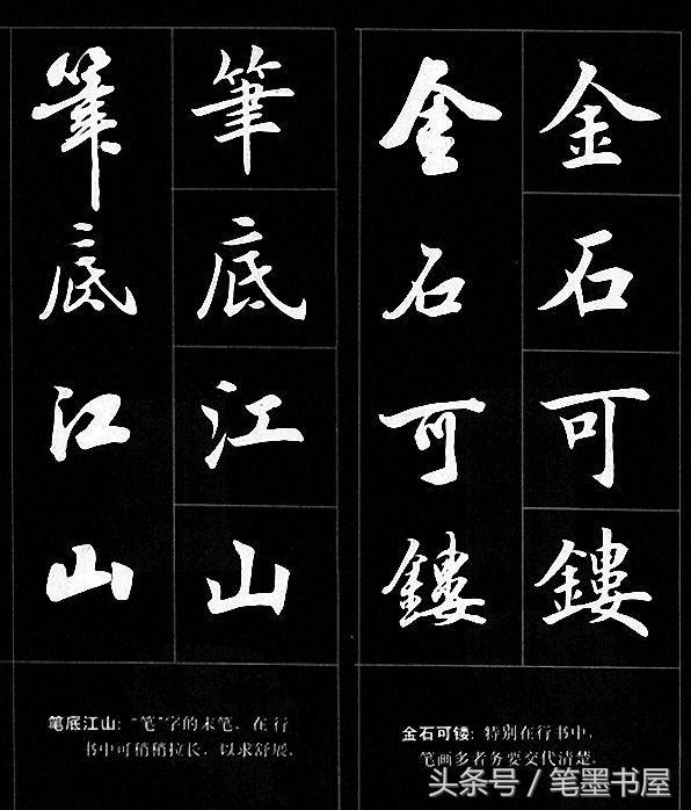 金石可鏤
金石可鏤
金石可镂：特别在行书中，
笔画多者务要交代清楚。
筆底江山
筆底江山
笔底江山：“笔”字的末笔，在行
书中可稍稍拉长，以求舒展。
头条号 / 笔墨书屋